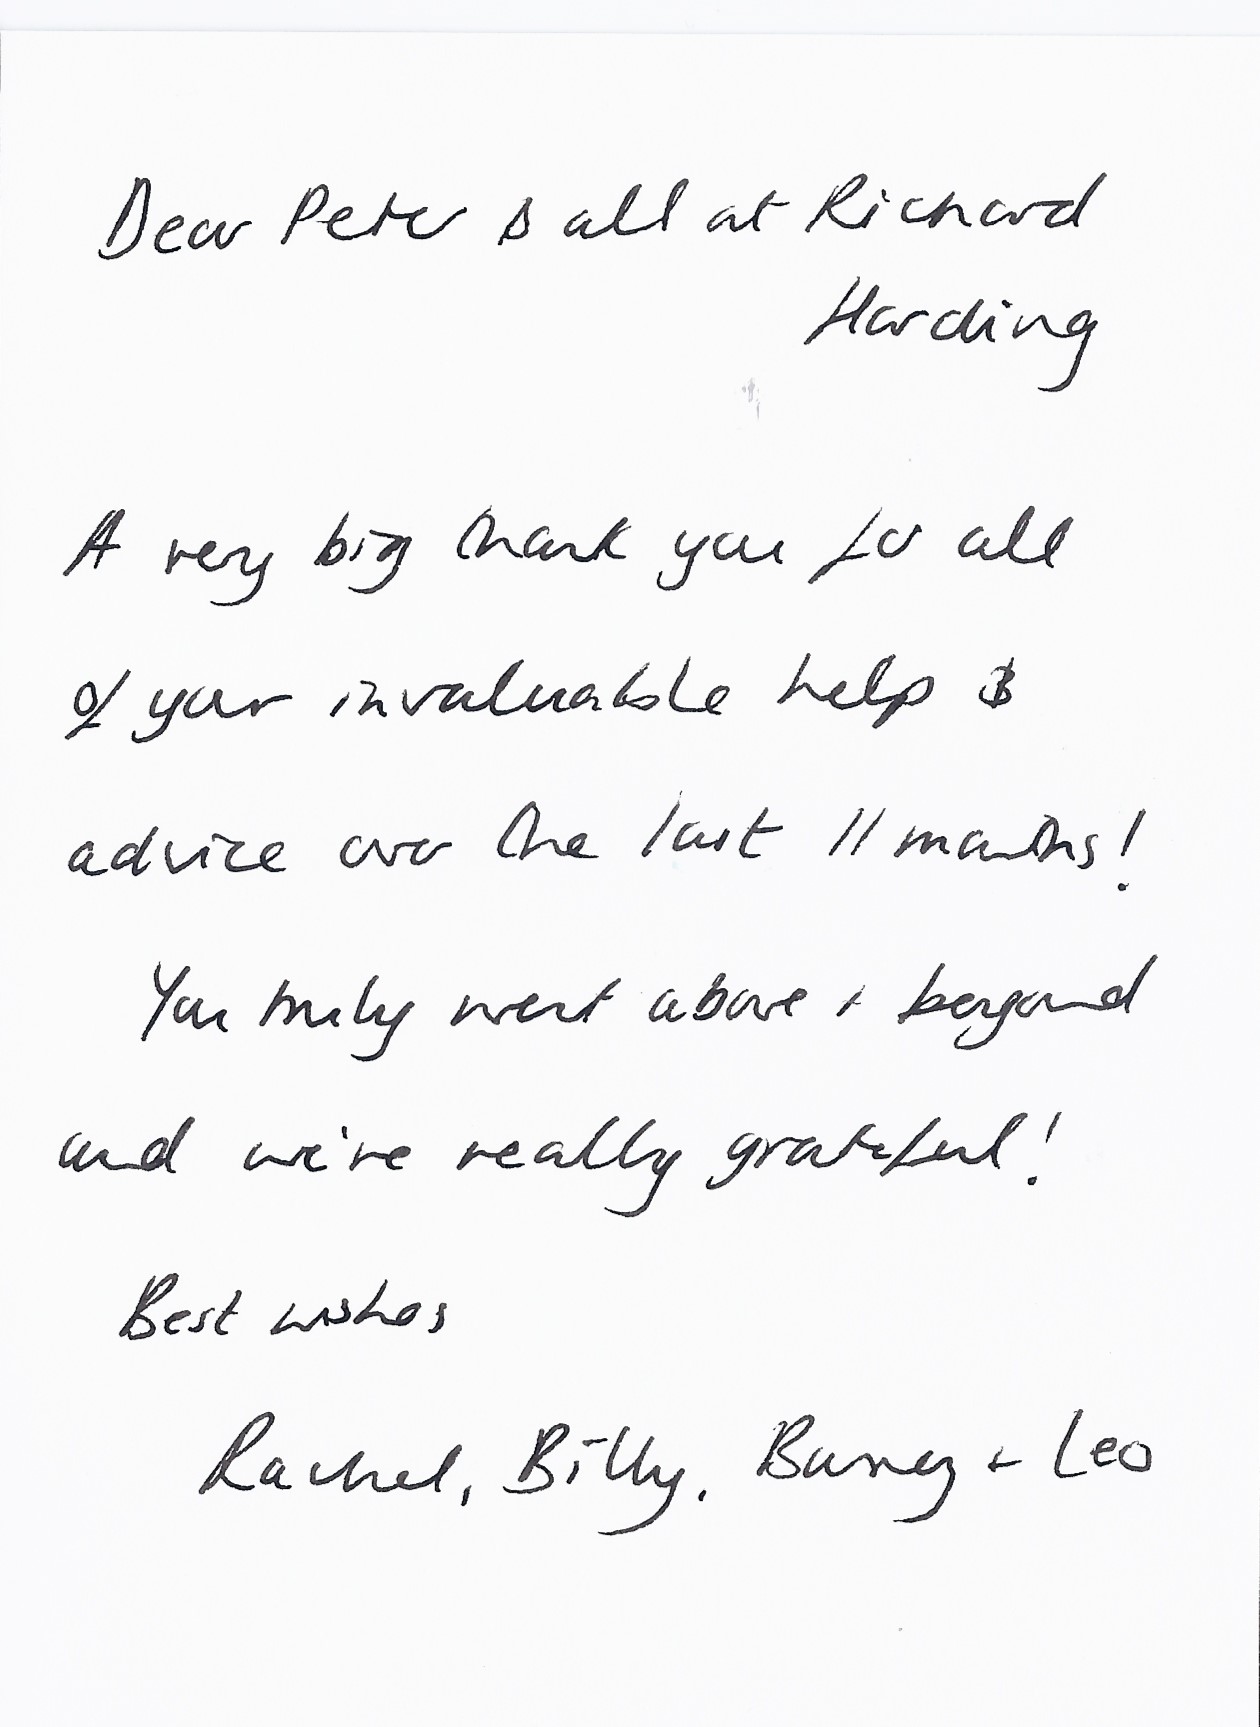 Dear Peter & all at Richard
Harding
A very big thank you for all
of your invaluable help &
advice over the last 11 months!
You truly went above + beyond
and we're really grateful!
Best wishes
Rachel, Billy, Barney + Leo